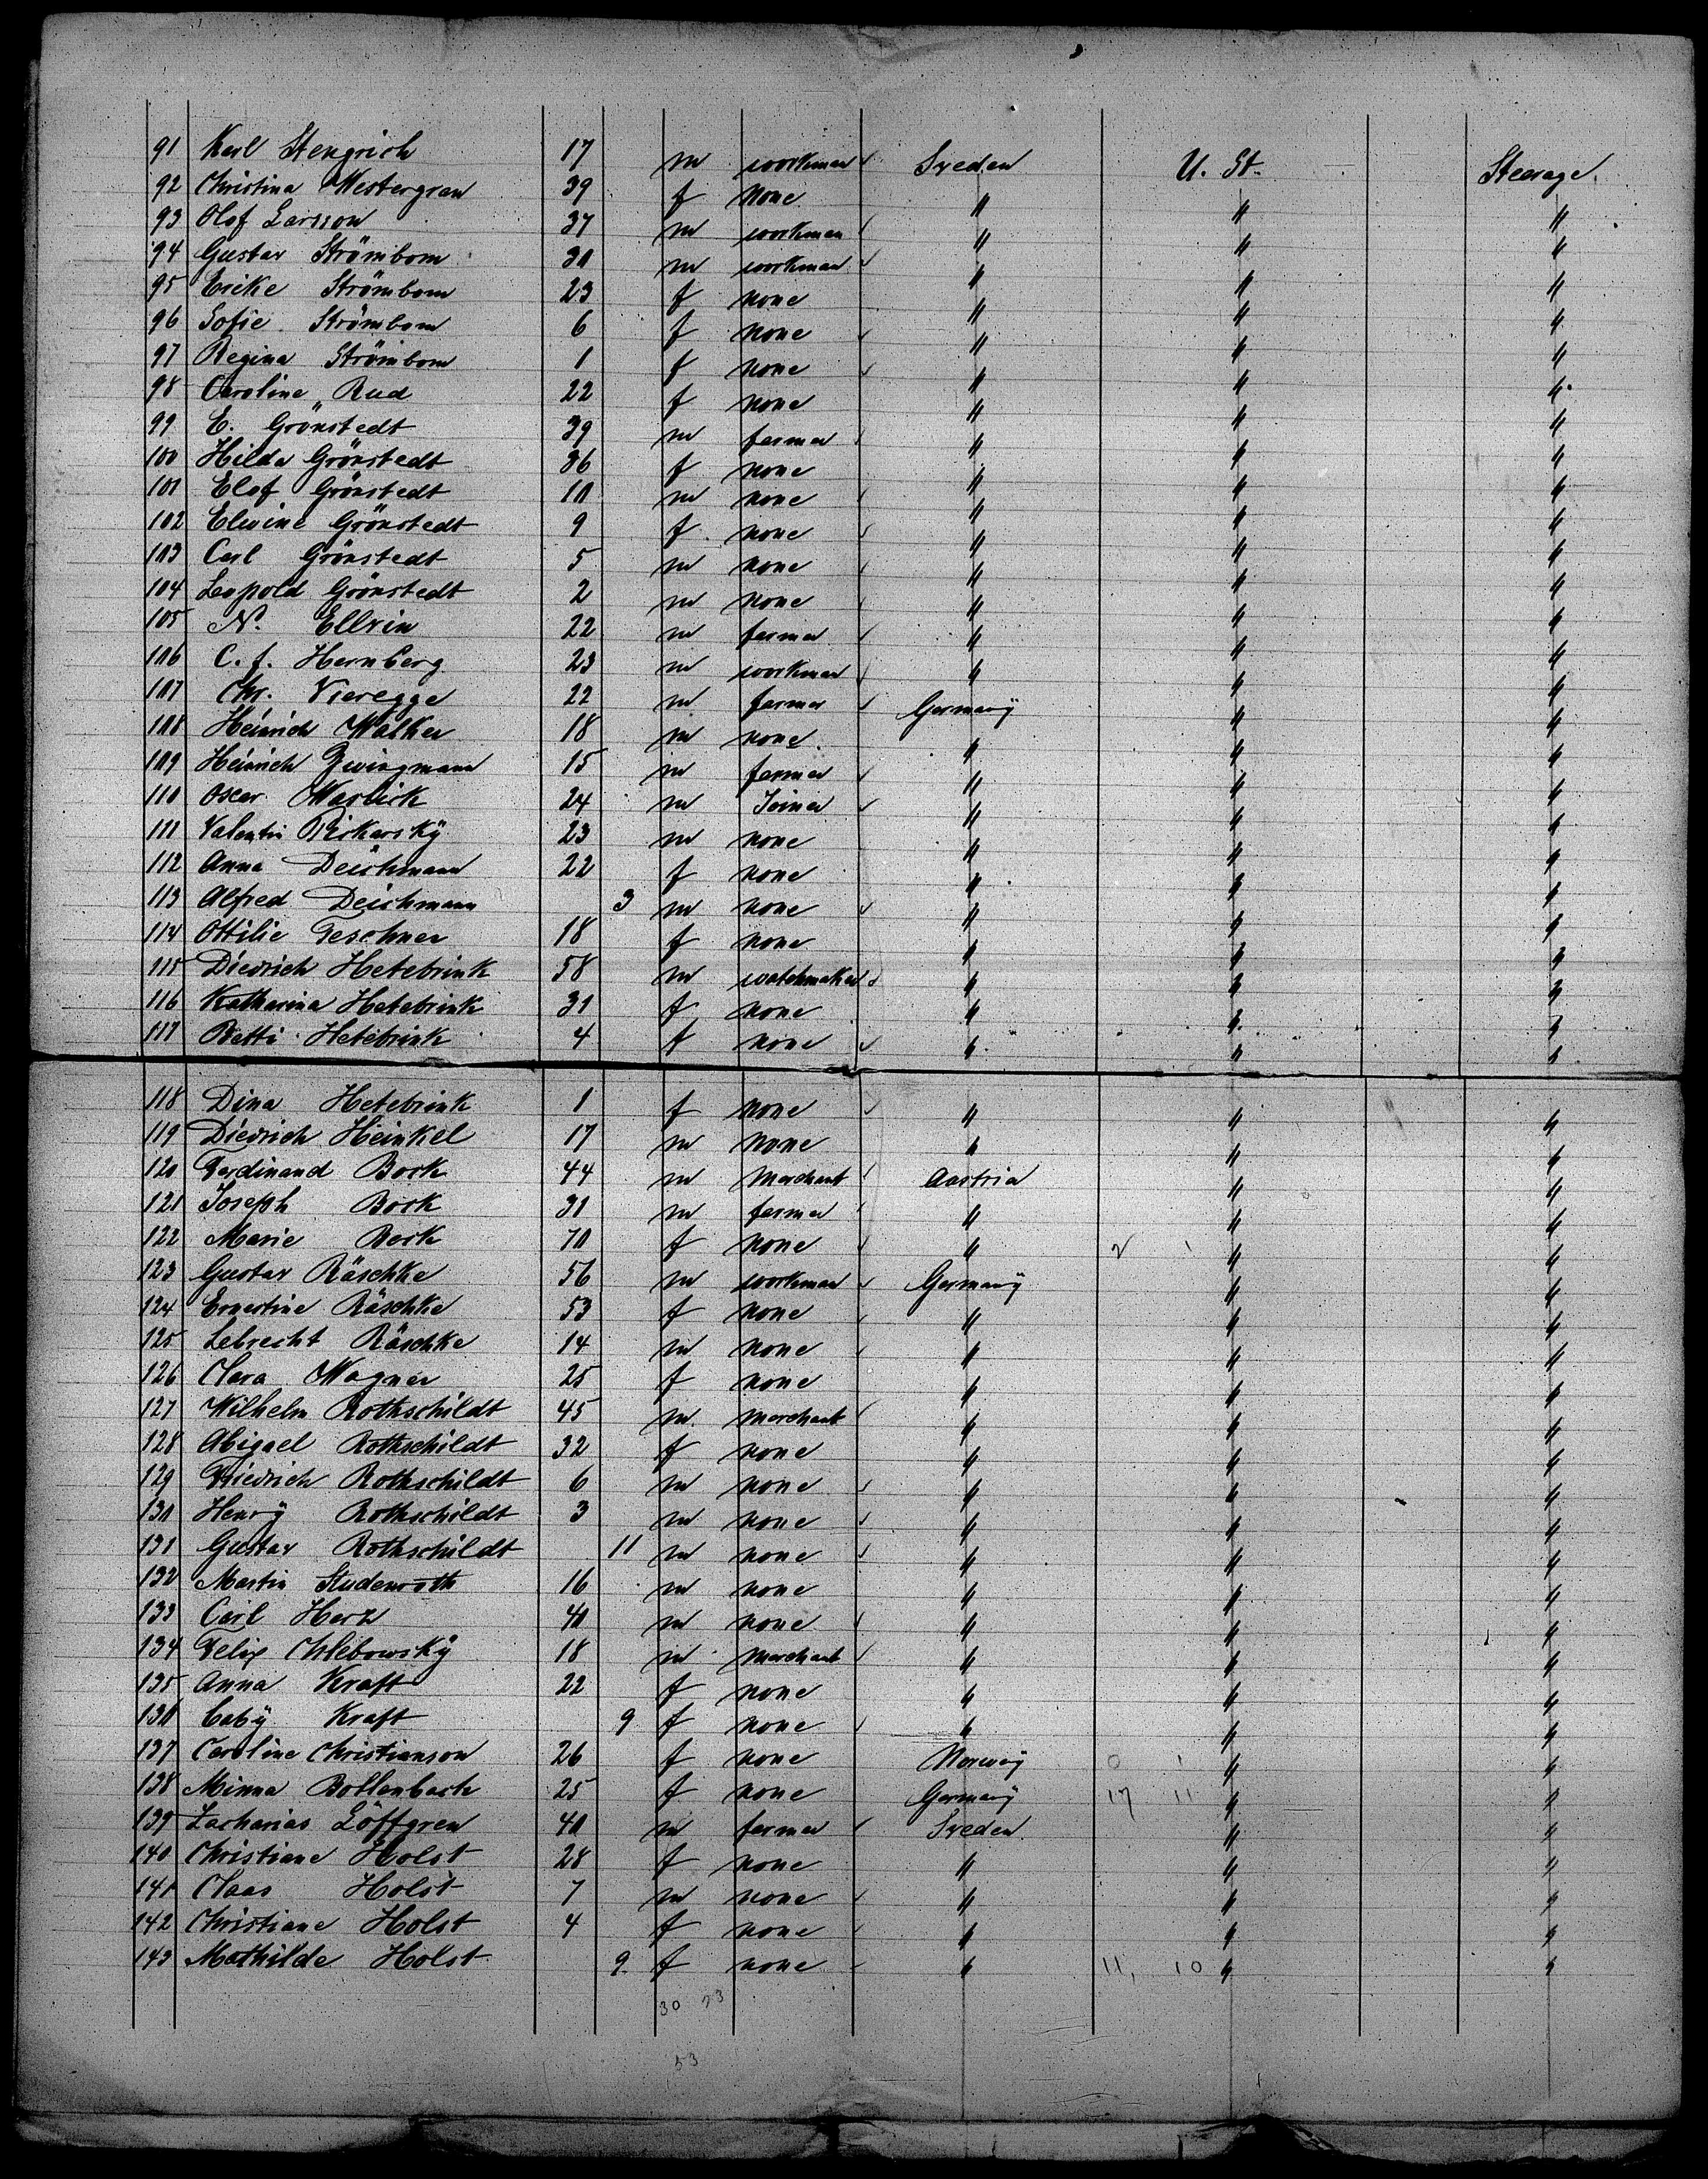 91 Karl Stengrich 17 m workman Sveden U. St. Steerage.
92 Christina Westergren 39 f none " " "
93 Olof Larsson 37 m workman " " "
94 Gustav Strömbom 30 m workman " " "
95 Ericke Strömbom 23 f none " " "
96 Sofie Strömbom 6 f none " " "
97 Regina Strömbom 1 f none " " "
98 Caroline Rud 22 f none " " "
99 E. Grönstedt 39 m farmer " " "
100 Hilda Grönstedt 36 f none " " "
101 Elof Grönstedt 10 m none " " "
102 Elwine Grönstedt 9 f none " " "
103 Carl Grönstedt 5 m none " " "
104 Leopold Grönstedt 2 m none " " "
105 N. Ellvin 22 m farmer " " "
106 C. f. Hernberg 23 m workman " " "
107 Chr. Vieregge 22 m farmer Germany " "
108 Heinrich Walker 18 m none " " "
109 Heinrich Zwingmann 15 m farmer " " "
110 Oscar Warlick 24 m Joiner " " "
111 Valentin Pickarsky 23 m none " " "
112 Anna Deichmann 22 f none " " "
113 Alfred Deichmann 3 m none " " "
114 Ottilie Teschner 18 f none " " "
115 Diedrich Hetebrink 58 m watchmaker " " "
116 Katharina Hetebrink 31 f none " " "
117 Betti Hetebrink 4 f none " " "
118 Dina Hetebrink 1 f none " " "
119 Diedrich Heinkel 17 m none " " "
120 Ferdinand Bock 44 m merchant Austria " "
121 Joseph Bock 31 m farmer " " "
122 Marie Bock 70 f none " 2 1 " "
123 Gustav Räschke 56 m workman Germany " "
124 Ernestine Räschke 53 f none " " "
125 Lebrecht Räschke 14 m none " " "
126 Clara Wagner 25 f none " " "
127 Wilhelm Rothschildt 45 m merchant " " "
128 Abigael Rothschildt 32 f none " " "
129 Friedrich Rothschildt 6 m none " " "
130 Henry Rothschildt 3 m none " " "
131 Gustav Rothschildt 11 m none " " "
132 Martin Studenroth 16 m none " " "
133 Carl Herz 40 m none " " "
134 Felix Chlebowsky 18 m merchant " " "
135 Anna Kraft 22 f none " " "
136 baby Kraft 9 f none " " "
137 Caroline Christianson 26 f none Norway 0 1 " "
138 Minna Bollenbach 25 f none Germany 17 11 " "
139 Zacharias Löffgren 40 m farmer Sveden " "
140 Christiane Holst 28 f none " " "
141 Claas Holst 7 m none " " "
142 Christiane Holst 4 f none " " "
143 Mathilde Holst 9 f none " 11, 10 " "
30 23
53